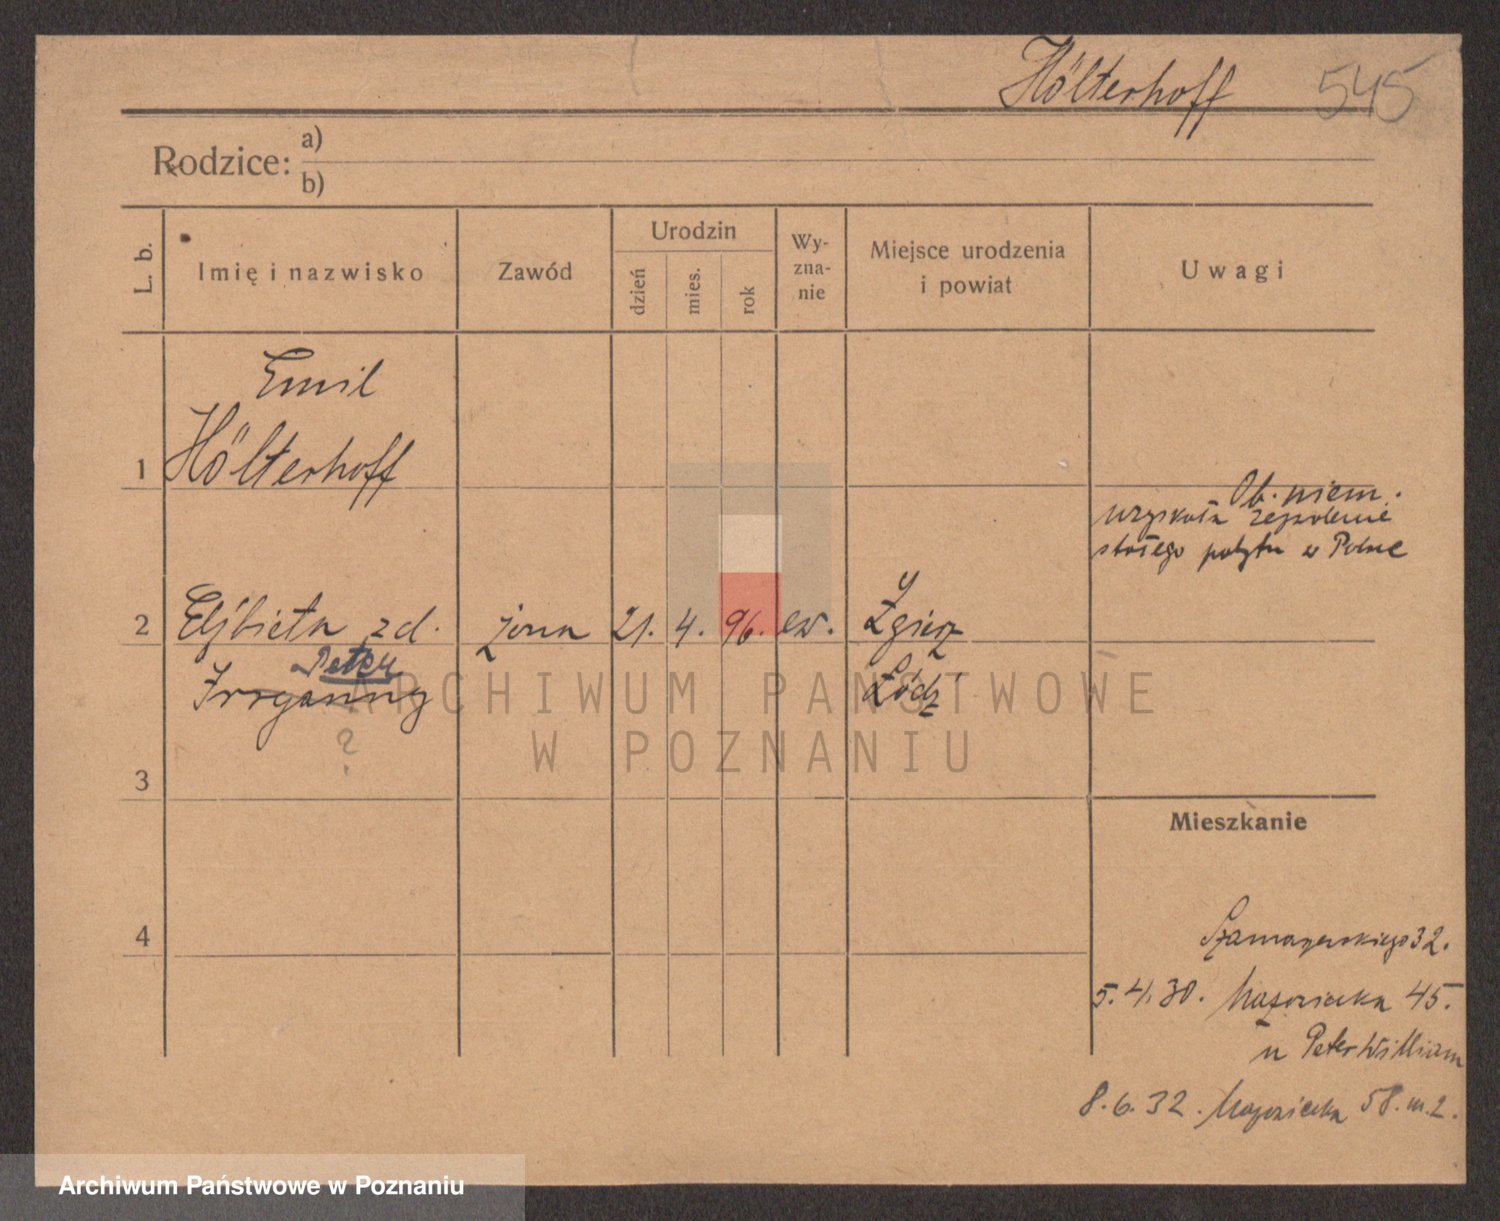 Hölterhoff 545
Rodzice: a)
b)
L. b.
Imię i nazwisko
Zawód
Urodzin
dzień
mies.
rok
Wy-
zna-
nie
Miejsce urodzenia
i powiat
Uwagi
Emil
1 Hölterhoff
Ob. niem.
uzyskała zezwolenie
stałego pobytu w Polsce
2 Elżbieta zd. żona 21. 4. 96. ew. Zgierz
Peter
Łódź
?
3
Mieszkanie
4
Szamarzewskiego 32.
5.4.30. Mazowiecka 45.
u Peter William
8.6.32. Mazowiecka 58. m. 2.
ARCHIWUM PAŃSTWOWE
W POZNANIU
Archiwum Państwowe w Poznaniu